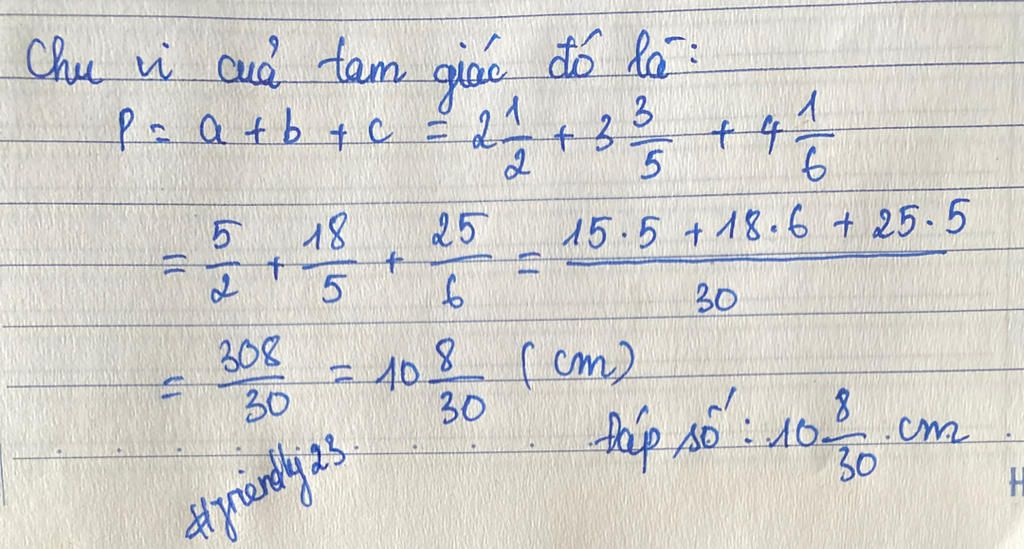 Chu vi cuả tam giác đó là:
P = a + b + c = 2 1/2 + 3 3/5 + 4 1/6
= 5/2 + 18/5 + 25/6 = (15.5 + 18.6 + 25.5)/30
= 308/30 = 10 8/30 (cm)
Đáp số: 10 8/30 cm
#friendly23
H